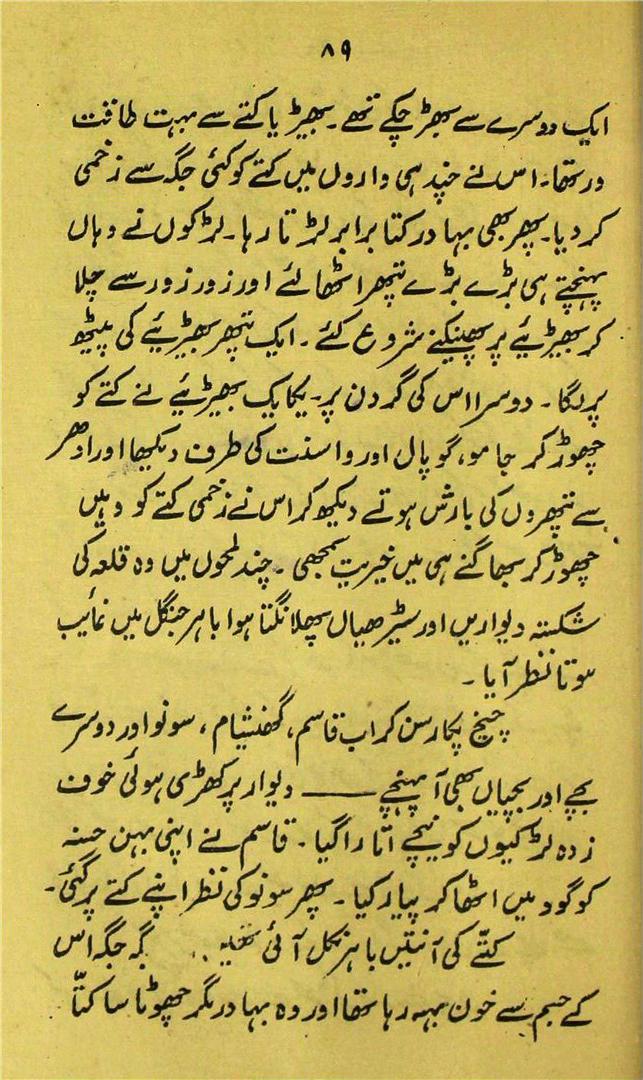 ۸۹
ایک دوسرے سے بھڑ چکے تھے۔ بھیڑیا کتے سے بہت طاقت
ور تھا۔ اس نے چند ہی واروں میں کتے کو کئی جگہ سے زخمی
کر دیا۔ پھر بھی بہادر کتا برابر لڑتا رہا۔ لڑکوں نے وہاں
پہنچتے ہی بڑے بڑے پتھر اٹھالئے اور زور زور سے چلا
کر بھیڑیئے پر پھینکنے شروع کئے۔ ایک پتھر بھیڑیئے کی پیٹھ
پر لگا۔ دوسرا اس کی گردن پر۔ یکایک بھیڑیئے نے کتے کو
چھوڑ کر جامو، گوپال اور واسنت کی طرف دیکھا اور ادھر
سے پتھروں کی بارش ہوتے دیکھ کر اس نے زخمی کتے کو وہیں
چھوڑ کر بھاگنے ہی میں خیریت سمجھی۔ چند لمحوں میں وہ قلعہ کی
شکستہ دیواریں اور سیڑھیاں پھلانگتا ہوا باہر جنگل میں غائب
ہوتا نظر آیا۔
چیخ پکار سن کر اب قاسم، گھنشیام، سونو اور دوسرے
بچے اور بچیاں بھی آ پہنچے —— دیوار پر کھڑی ہوئی خوف
زدہ لڑکیوں کو نیچے اتارا گیا۔ قاسم نے اپنی بہن حسنہ
کو گود میں اٹھا کر پیار کیا۔ پھر سونو کی نظر اپنے کتے پر گئی۔
کتّے کی آنتیں باہر نکل آئی تھیں۔۔ جگہ جگہ اس
کے جسم سے خون بہہ رہا تھا اور وہ بہادر مگر چھوٹا سا کتّا